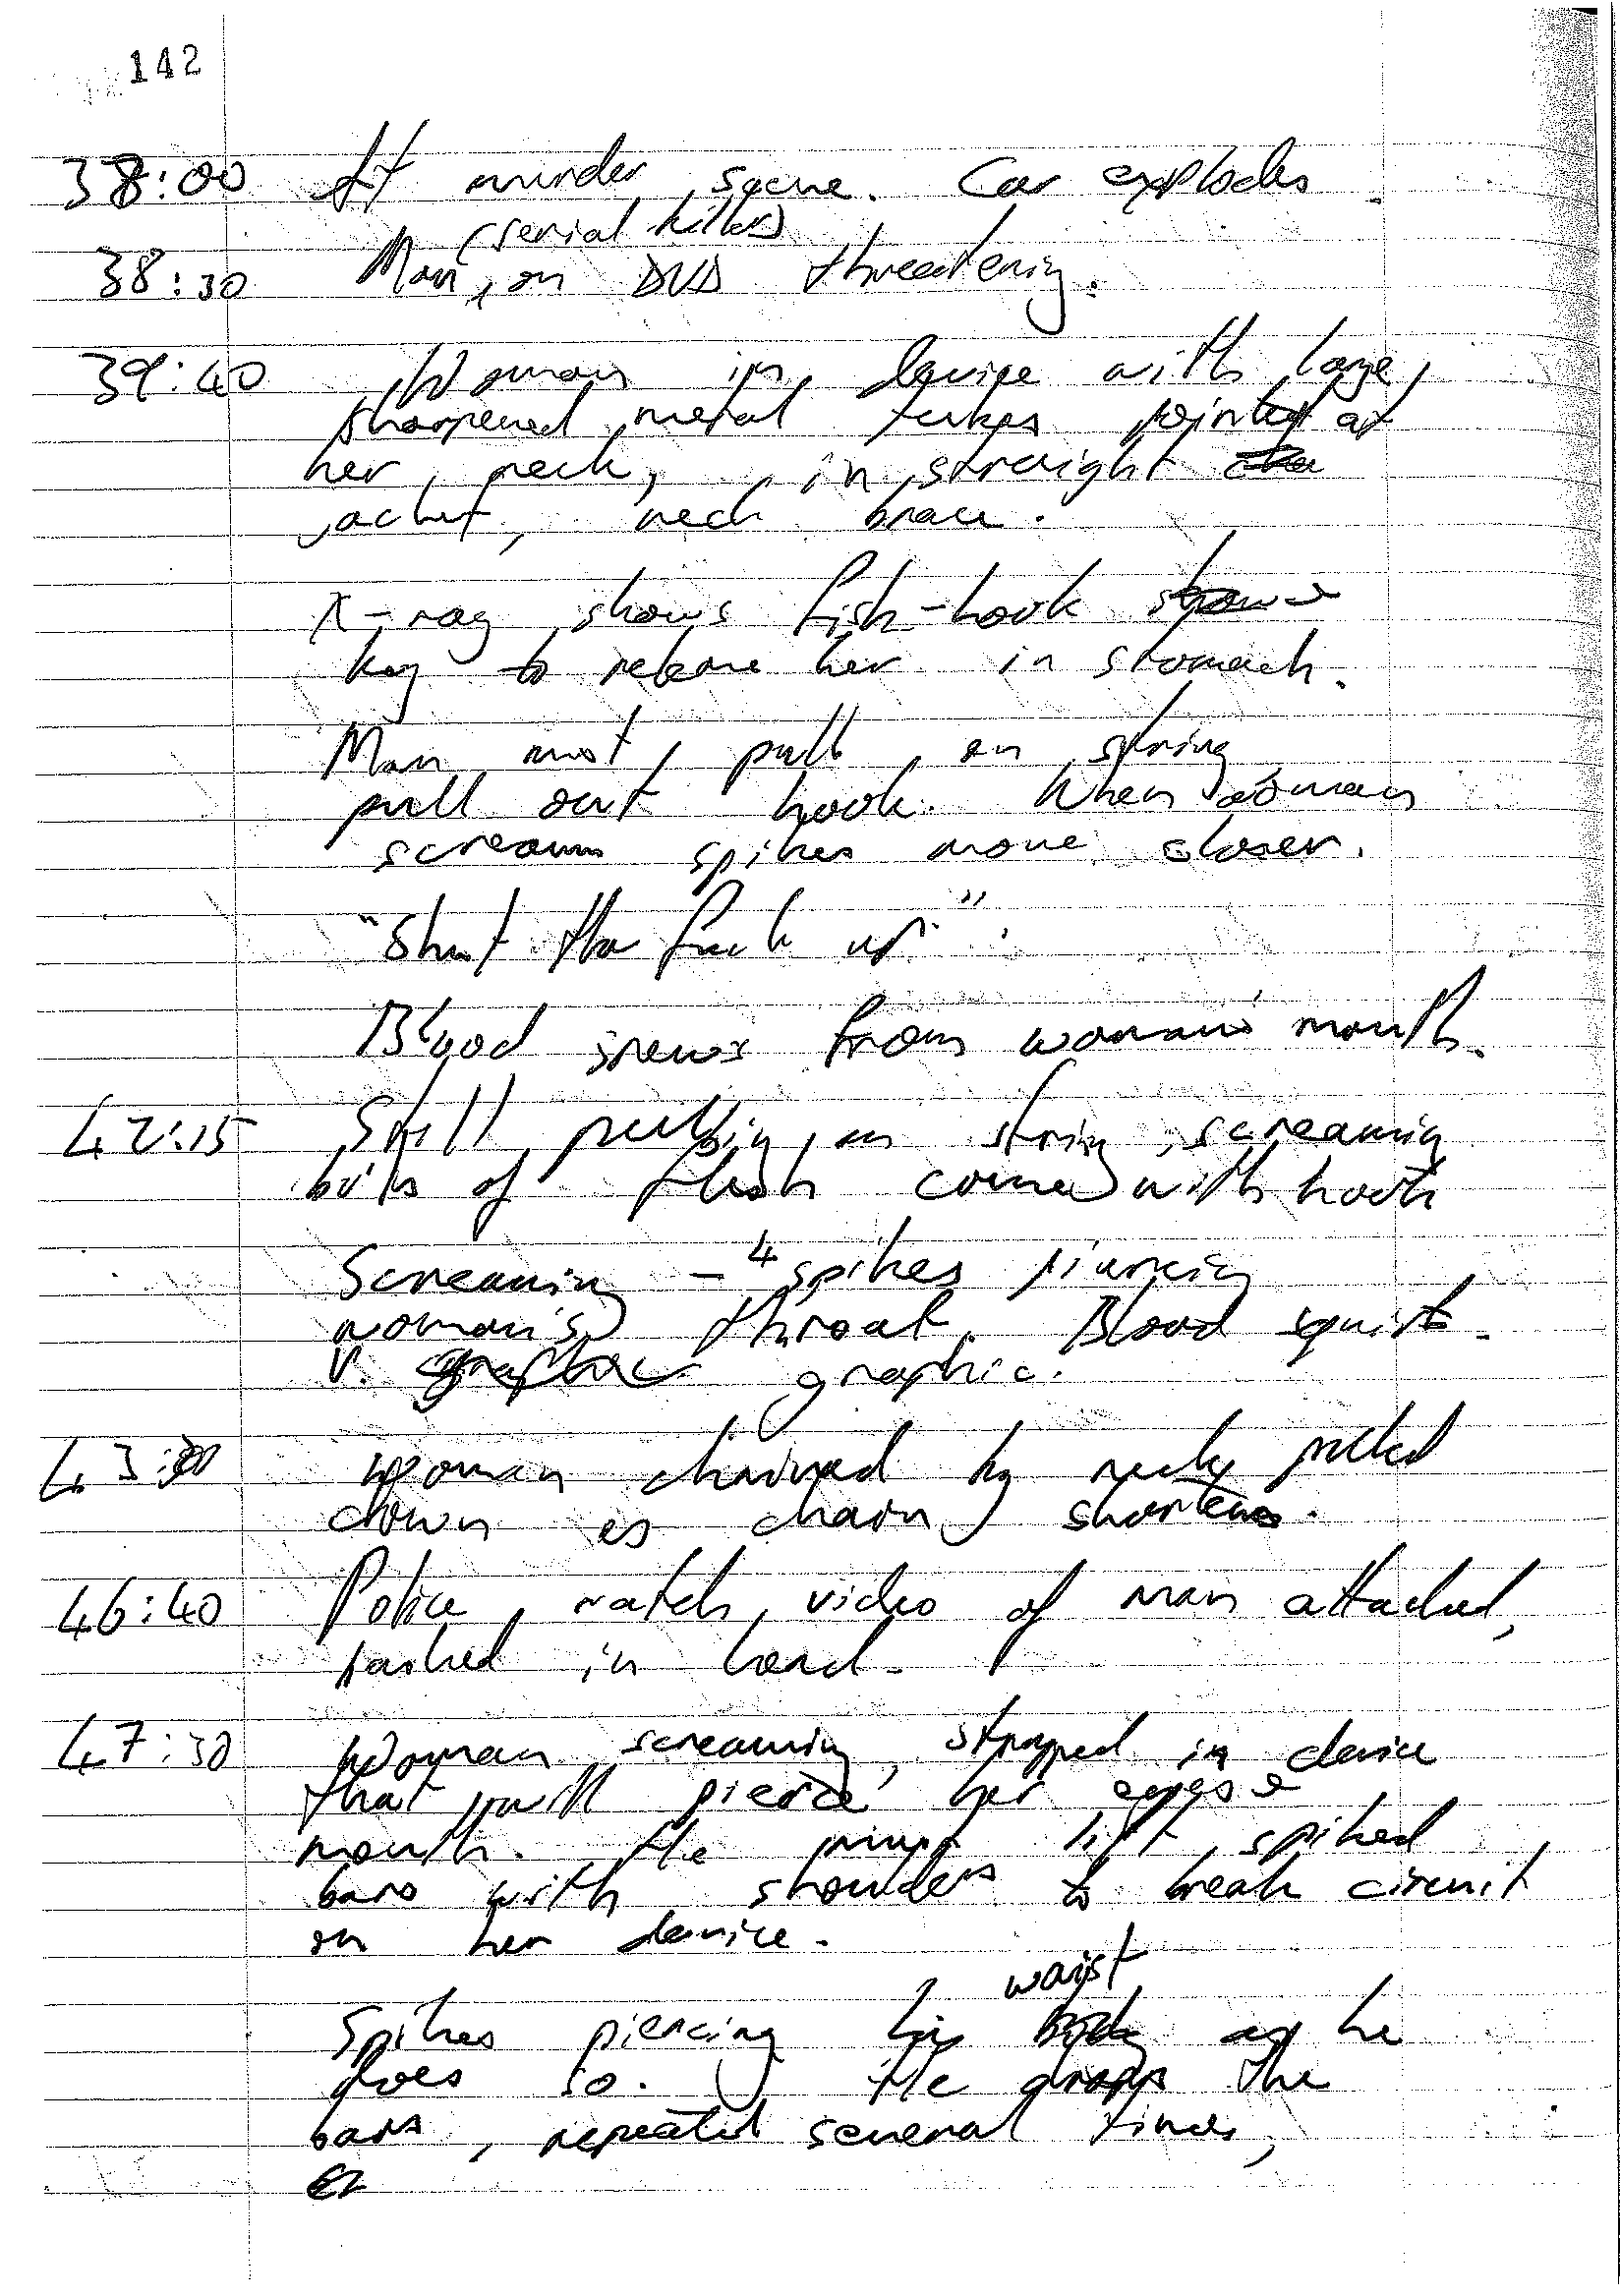 142
38:00 At murder scene. Car explodes.
(serial killer)
38:30 Man, on DVD threatening.
39:40 Woman in device with large,
sharpened metal tubes pointed at
her neck, in straight
jacket, neck brace.
X-ray shows fish-hook
key to release her in stomach.
Man must pull on string
pull out hook. When woman
screams spikes move closer.
"Shut the fuck up".
Blood spews from woman's mouth.
42:15 Still pulling on string, screaming
bits of flesh come with hook
Screaming - 4 spikes piercing
woman's throat. Blood squirts.
V. graphic.
Woman chained by neck pulled
down as chain shortens.
46:40 Police watch video of man attached,
in head.
47:30 Woman screaming, strapped in device
that will pierce her eyes &
mouth. He must lift spiked
bars with shoulders to break circuit
on her device.
waist
Spikes piercing his as he
does so. He drops the
bars, repeated several times,